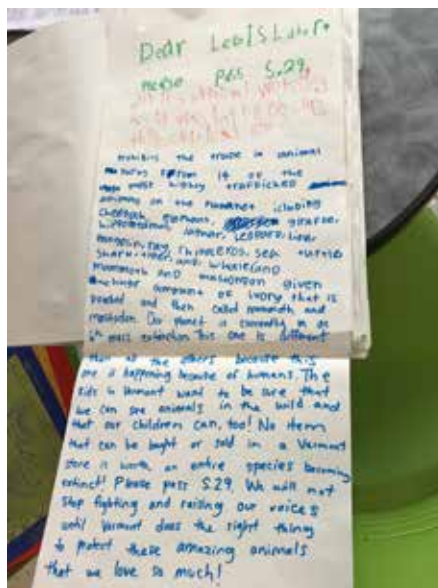 Dear Legislator
please Pass S.29,
prohibits the trade in animal
from 14 of the
most highly trafficked
animals on the planet icluding
cheetah, elephant, giraffe,
hippopotamus, Leopard, Lion,
pangolin, ray, rhinoceros, sea turtle
shark, tiger, and whale (and
mammoth and mastodon given
amount of ivory that is
and then called mammoth and
mastodon. Our planet is currently in
6th mass extinction This one is different
than all the others because this
one is happening because of humans. The
kids in Vermont want to be sure that
we can see animals in the wild and
that our children can, too! No item
that can be bought or sold in a Vermont
store is worth an entire species becoming
extinct! Please pass S.29. We will not
stop fighting and raising our voices
until Vermont does the right thing
to protect these amazing animals
that we love so much!